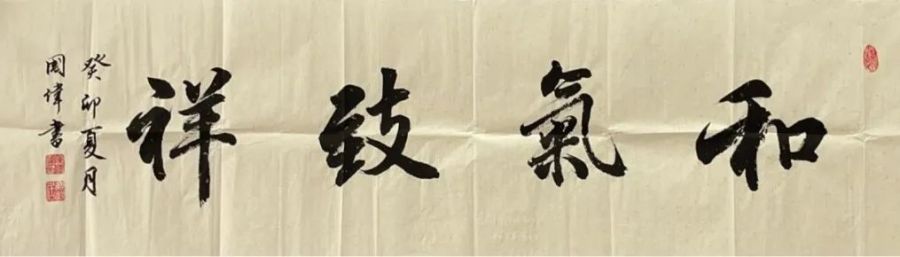 和氣致祥
癸卯夏月
國偉書